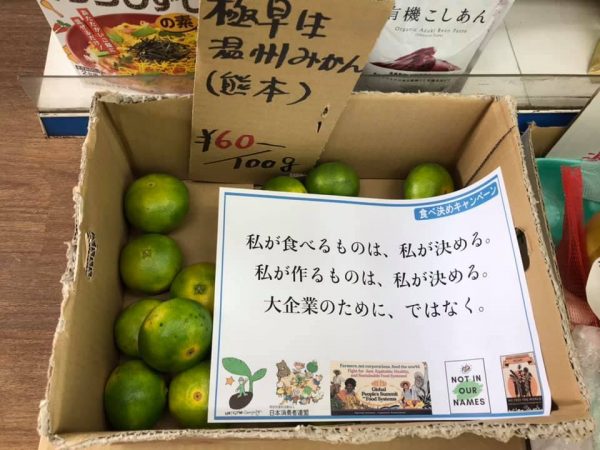 の素
極早生
温州みかん
(熊本)
¥60-
/100g
有機こしあん
Organic Azuki Bean Paste
食べ決めキャンペーン
私が食べるものは、私が決める。
私が作るものは、私が決める。
大企業のために、ではなく。
日本消費者連盟
Farmers, not corporations, feed the world.
Fight for Just, Equitable, Healthy,
and Sustainable Food Systems!
Global
People's Summit
on Food Systems
NOT IN
OUR
NAMES